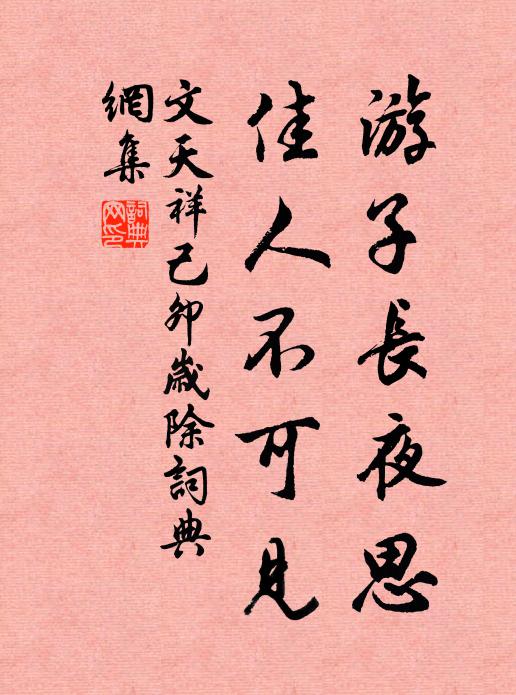 游子長夜思
佳人不可見
文天祥己卯歲除詞典
網集
詞典
网印